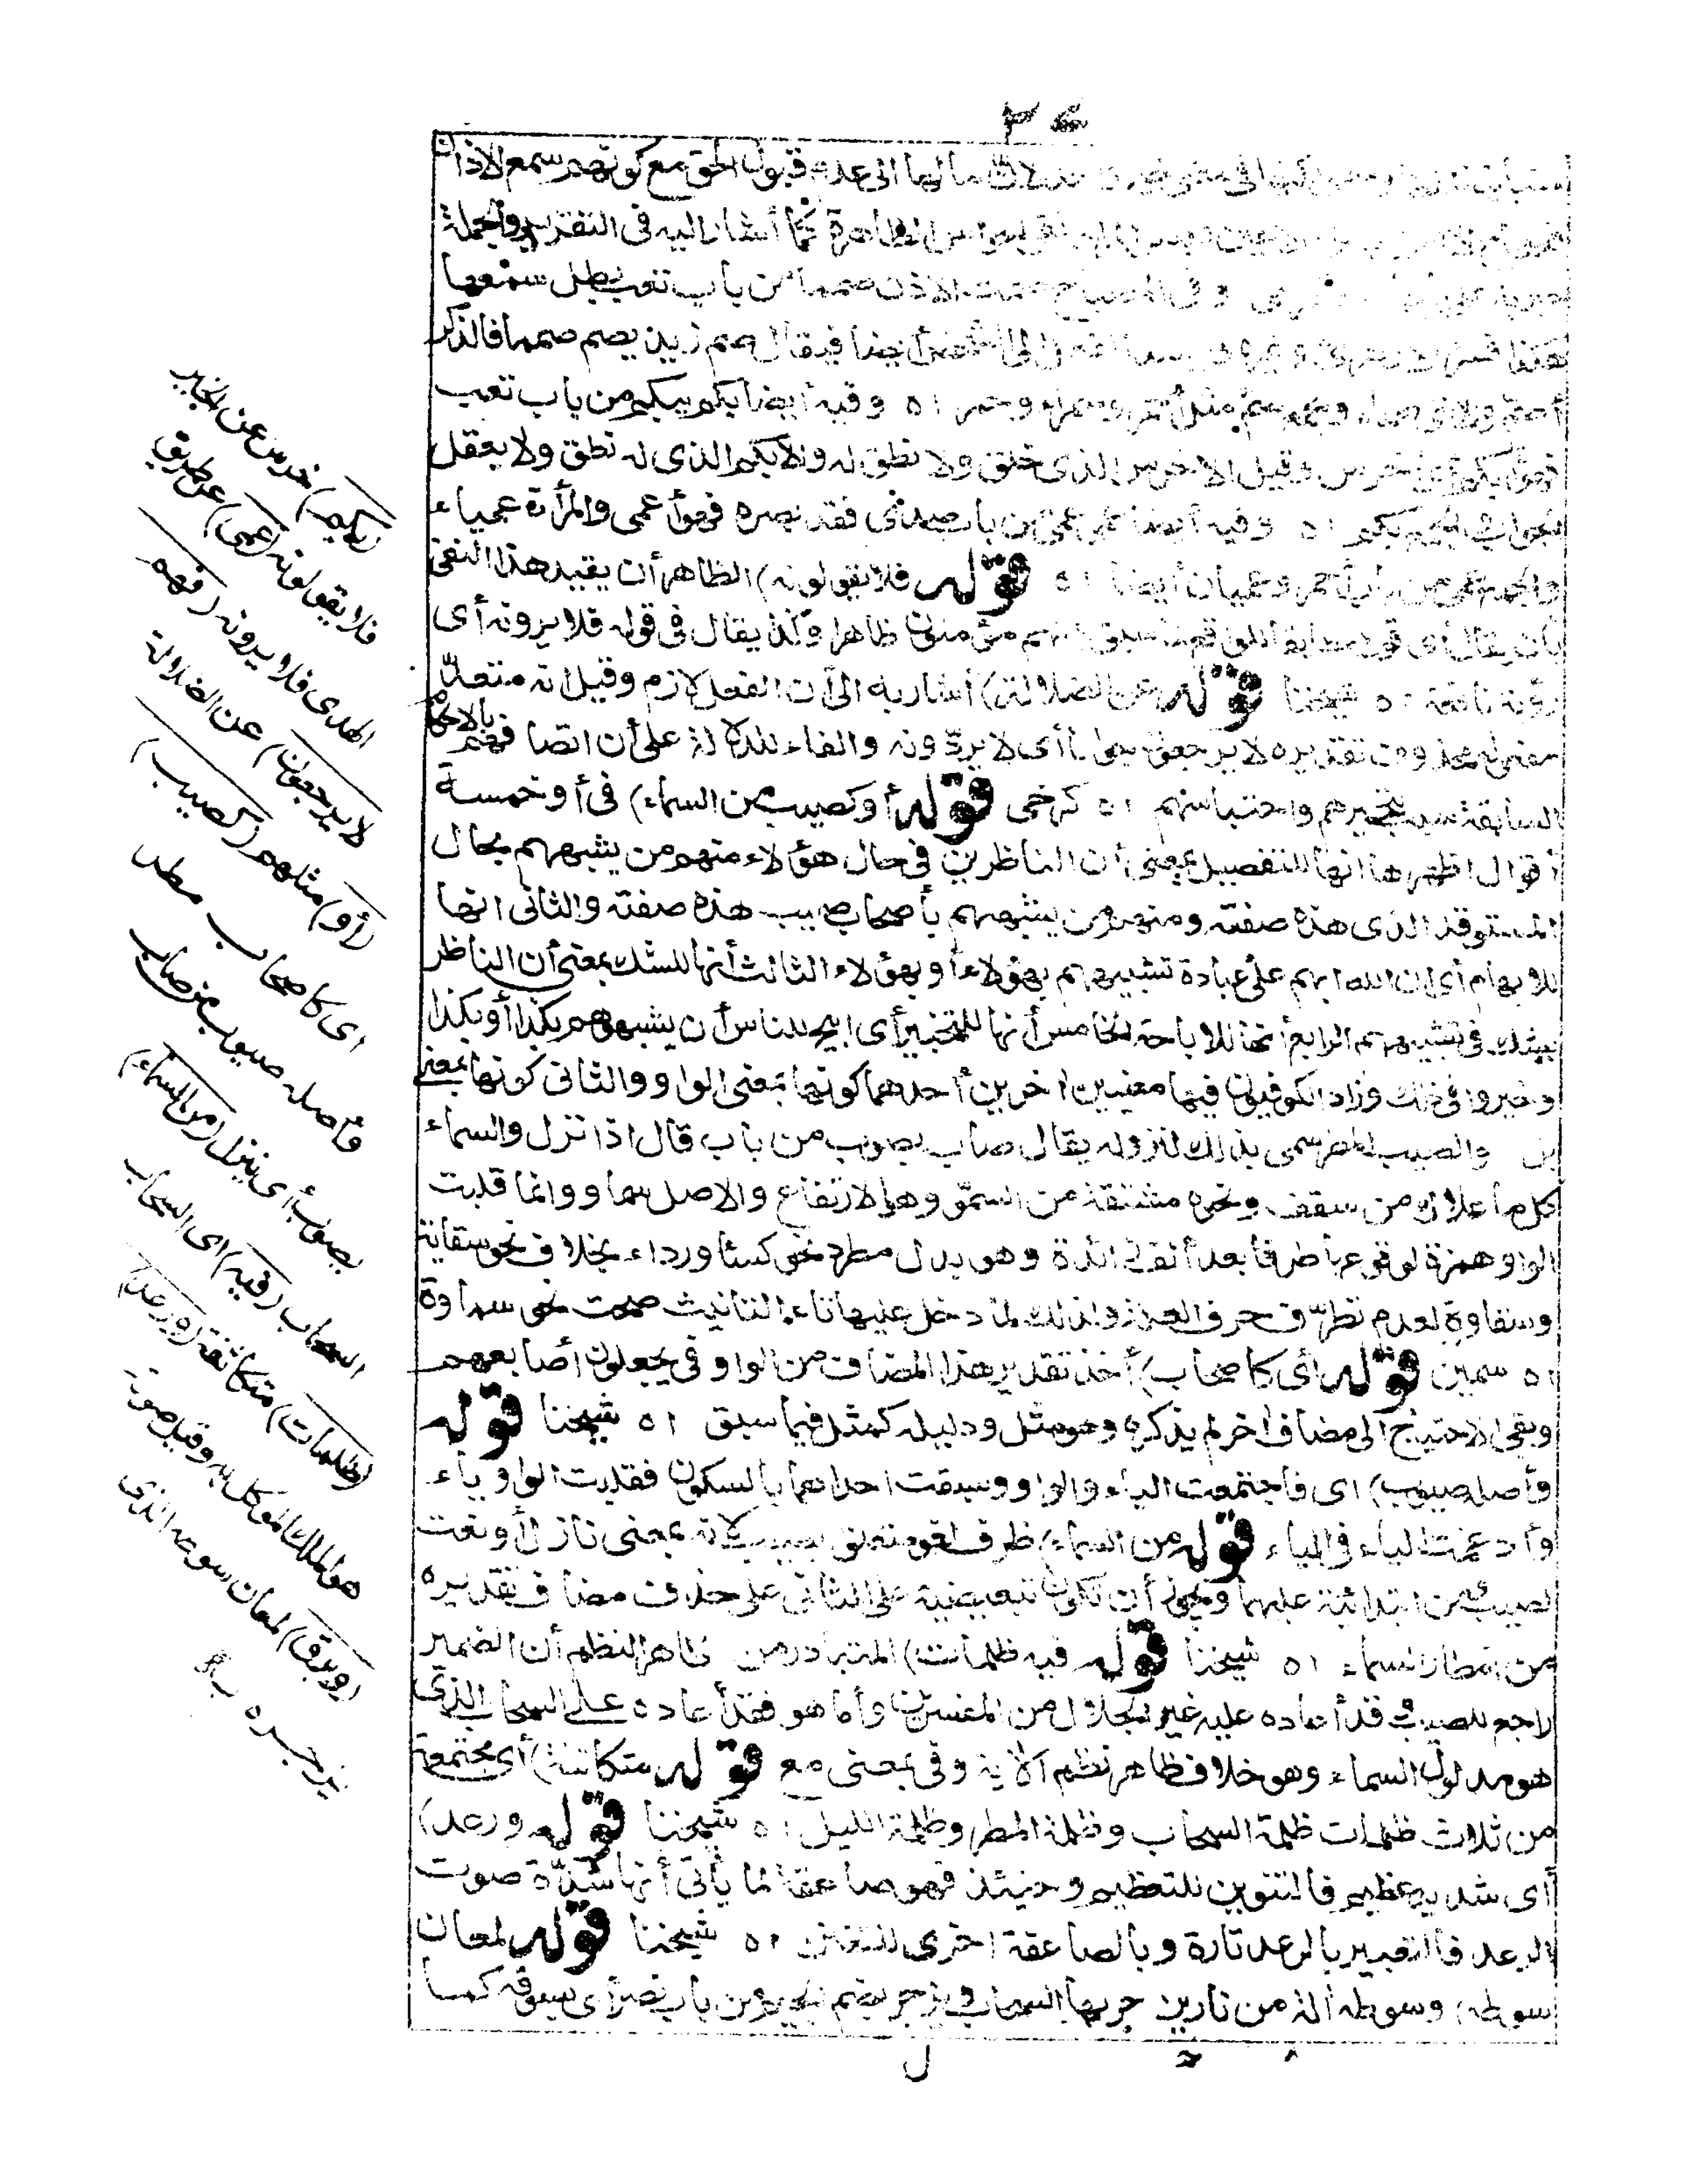 ٣٤
مالها الى عدم قبول الحق مع كونهم سمع الاذان
الظاهرة كما أشار اليه فى التقرير والجملة
وفى المصباح صمت الاذن صمما من باب تعب بطل سمعها
هكذا فسره الازهرى وغيره ويسند الفعل الى الشخص أيضا فيقال صم زيد يصم صمما فالذكر
أصم والانثى صماء والجمع صم مثل أحمر وحمراء وحمر اه وفيه أيضا بكم يبكم من باب تعب
فهو أبكم أى أخرس وقيل الاخرس الذى خلق ولا نطق له والابكم الذى له نطق ولا يعقل
الجواب والجمع بكم اه وفيه أيضا عمى من باب صدى فقد بصره فهو أعمى والمرأة عمياء
والجمع عمى من باب أحمر وعميان أيضا اه قوله فلا يقولونه) الظاهر أن يقيد هذا النفى
بأن يقال أى قولا مطابقا للواقع لما سبق انهم مؤمنون ظاهرا وكذا يقال فى قوله فلا يرونه أى
رؤية نافعة اه شيخنا قوله عن الضلالة) أشار به الى أن الفعل لازم وقيل انه متعد
مفعوله محذوف تقديره لا يرجعون جوابا أى لا يردونه والفاء للدلالة على أن اتصافهم بالاحكام
السابقة سبب لتحيرهم واحتباسهم اه كرخى قوله أو كصيب من السماء) فى أو خمسة
أقوال اظهرها انها للتفصيل بمعنى أن الناظرين فى حال هؤلاء منهم من يشبههم بحال
المستوقد الذى هذه صفته ومنهم من يشبههم بأصحاب صيب هذه صفته والثانى انها
للابهام أى ان الله ابهم على عباده تشبيههم بهؤلاء أو بهؤلاء الثالث أنها للشك بمعنى أن الناظر
يشك فى تشبيههم الرابع أنها للاباحة الخامس أنها للتخيير أى ابيح للناس أن يشبهوهم بكذا أو بكذا
وخيروا فى ذلك وزاد الكوفيون فيها معنيين اخرين أحدهما كونها بمعنى الواو والثانى كونها بمعنى
بل والصيب المطر سمى بذلك لنزوله يقال صاب يصوب من باب قال اذا نزل والسماء
كل ما علاك من سقف ونحوه مشتقة من السمو وهو الارتفاع والاصل سماو وانما قلبت
الواو همزة لوقوعها طرفا بعد ألف زائدة وهو بدل مطرد نحو كساء ورداء بخلاف نحو سقاية
وشقاوة لعدم تطرف حرف العلة ولذلك لما دخل عليها تاء التانيث صحت نحو سماوة
اه سمين قوله أى كاصحاب) أخذ تقدير هذا المضاف من الواو فى يجعلون أصابعهم
وبقى الاحتياج الى مضاف اخر لم يذكره وهو مثل ودليله كمثل فيما سبق اه شيخنا قوله
وأصله صيوب) اى فاجتمعت الياء والواو وسبقت احداهما بالسكون فقلبت الواو ياء
وأدغمت الياء فى الياء قوله من السماء) ظرف لغو متعلق بصيب لانه بمعنى نازل أو نعت
لصيب من ابتدائية عليهما ويجوز أن تكون تبعيضية على الثانى على حذف مضاف تقديره
من أمطار السماء اه شيخنا قوله فيه ظلمات) المتبادر من ظاهر النظم أن الضمير
راجع للصيب وقد أعاده عليه غير الجلال من المفسرين وأما هو فقد أعاده على السحاب الذى
هو مدلول السماء وهو خلاف ظاهر نظم الآية وفى بمعنى مع قوله متكاثفة) أى مجتمعة
من ثلاث ظلمات ظلمة السحاب وظلمة المطر وظلمة الليل اه شيخنا قوله ورعد)
أى شديد عظيم فالتنوين للتعظيم وحينئذ فهو صاعقة لما يأتى أنها شدة صوت
الرعد فالتعبير بالرعد تارة وبالصاعقة اخرى للتفنن اه شيخنا قوله لمعان
سوطه) وسوطه الة من نار يزجر بها السحاب ويزجر بضم الجيم من باب نصر أى يسوقه كما
(بكم) خرس عن الخير
فلا يقولونه (عمى) عن طريق
الهدى فلا يرونه (فهم
لا يرجعون) عن الضلالة
(أو) مثلهم (كصيب)
اى كاصحاب مطر
وأصله صيوب من صاب
يصوب أى ينزل (من السماء)
السحاب (فيه) اى السحاب
(ظلمات) متكاثفة (ورعد)
هو الملك الموكل به وقيل صوته
(وبرق) لمعان سوطه الذى
يزجره به